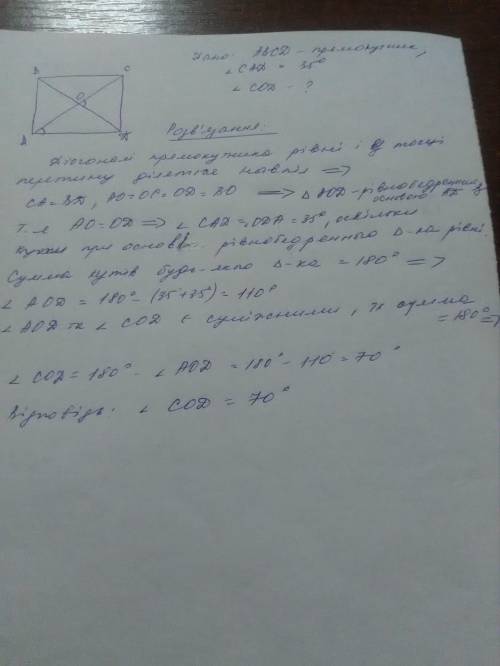 Дано: ABCD - прямокутник,
∠CAD = 35°
∠COD - ?
B
C
O
A
Розв'язання:
Діагоналі прямокутника рівні і в точці
перетину діляться навпіл =>
CA = BD, AO = OC = OD = BO => △ AOD - рівнобедренний з
основою AD
т.я AO = OD => ∠ CAD = ODA = 35°, оскільки
кути при основі рівнобедренного △-ка рівні.
Сумма кутів будь-якого △-ка = 180° =>
∠ AOD = 180° - (35+35°) = 110°
∠ AOD та ∠ COD є суміжними, їх сумма
= 180° =>
∠ COD = 180° - ∠ AOD = 180° - 110 = 70°
Відповідь: ∠ COD = 70°